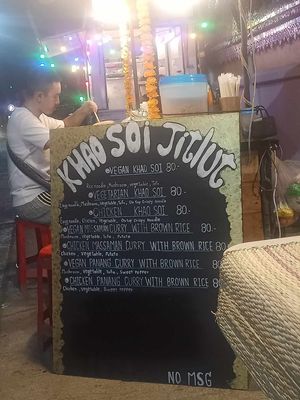 KHAO SOI Jitlut
VEGAN KHAO SOI 80.-
Rice noodle, Mushroom, vegetable, Tofu
VEGETARIAN KHAO SOI 80.-
Egg noodle, Mushroom, vegetable, Tofu, On top Crispy noodle
CHICKEN KHAO SOI 80.-
Egg noodle, Chicken, Vegetable, On top Crispy noodle
VEGAN MASSAMAN CURRY WITH BROWN RICE 80.-
Mushroom, Vegetable, Tofu, Potato
CHICKEN MASSAMAN CURRY WITH BROWN RICE 80
Chicken, Vegetable, Potato
VEGAN PANANG CURRY WITH BROWN RICE 80.-
Mushroom, Vegetable, Tofu, Sweet Pepper
CHICKEN PANANG CURRY WITH BROWN RICE 80
Chicken, Vegetable, Sweet Pepper
NO MSG